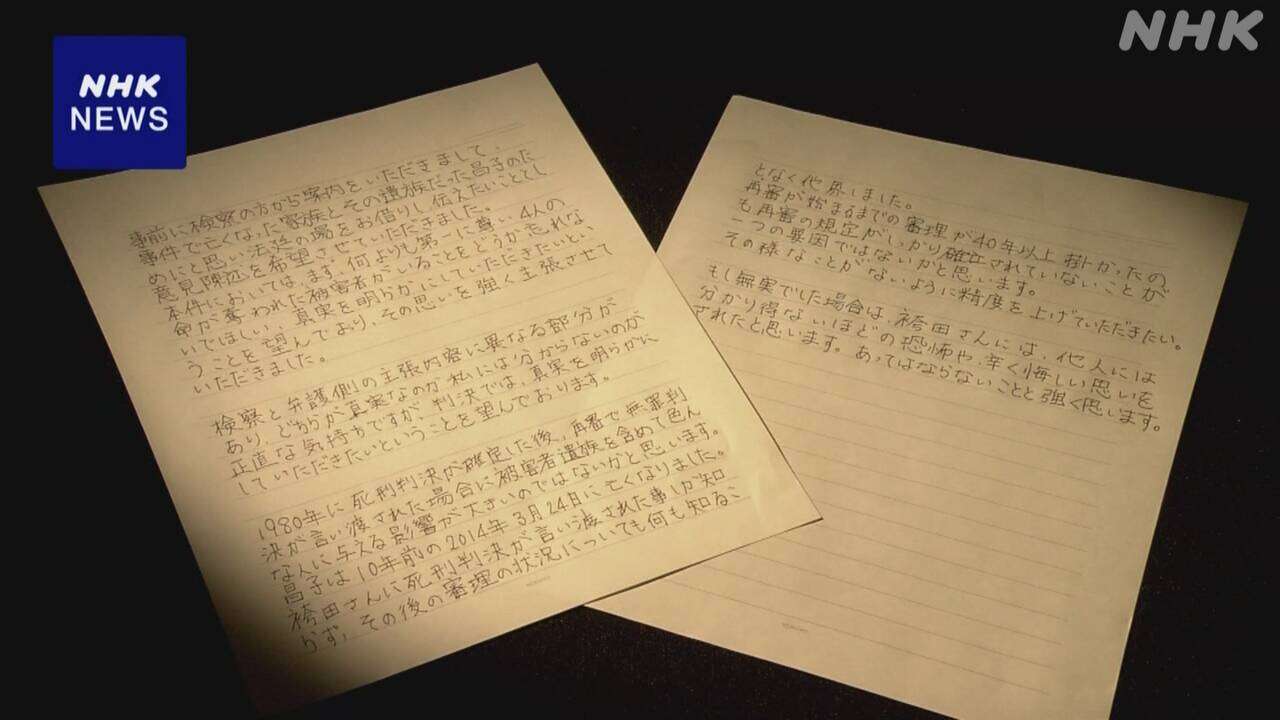 NHK
NHK
NEWS
事前に検察の方から案内をいただきまして、
事件で亡くなった家族とその遺族だった昌子のた
めにと思い法廷の場をお借りし伝えたいこととし
意見陳述を希望させていただきました。
本件においては、まず、何よりも第一に尊い4人の
命が奪われた被害者がいることをどうか忘れな
いでほしい、真実を明らかにしていただきたいとい
うことを望んでおり、その思いを強く主張させて
いただきました。
検察と弁護側の主張内容に異なる部分が
あり、どちらが真実なのか私には分からないのが
正直な気持ちですが、判決では、真実を明らかに
していただきたいということを望んでおります。
1980年に死刑判決が確定した後、再審で無罪判
決が言い渡された場合に被害者遺族を含めて色ん
な人に与える影響が大きいのではないかと思います。
昌子は10年前の2014年3月24日に亡くなりました。
袴田さんに死刑判決が言い渡された事しか知
らず、その後の審理の状況についても何も知るこ
となく他界しました。
再審が始まるまでの審理が40年以上掛かったの、
も再審の規定がしっかり確立されていないことが
一つの要因ではないかと思います。
その様なことがないように精度を上げていただきたい。
もし無実でした場合は、袴田さんには、他人には
分かり得ないほどの恐怖や、辛く悔しい思いを
されたと思います。あってはならないことと強く思います。